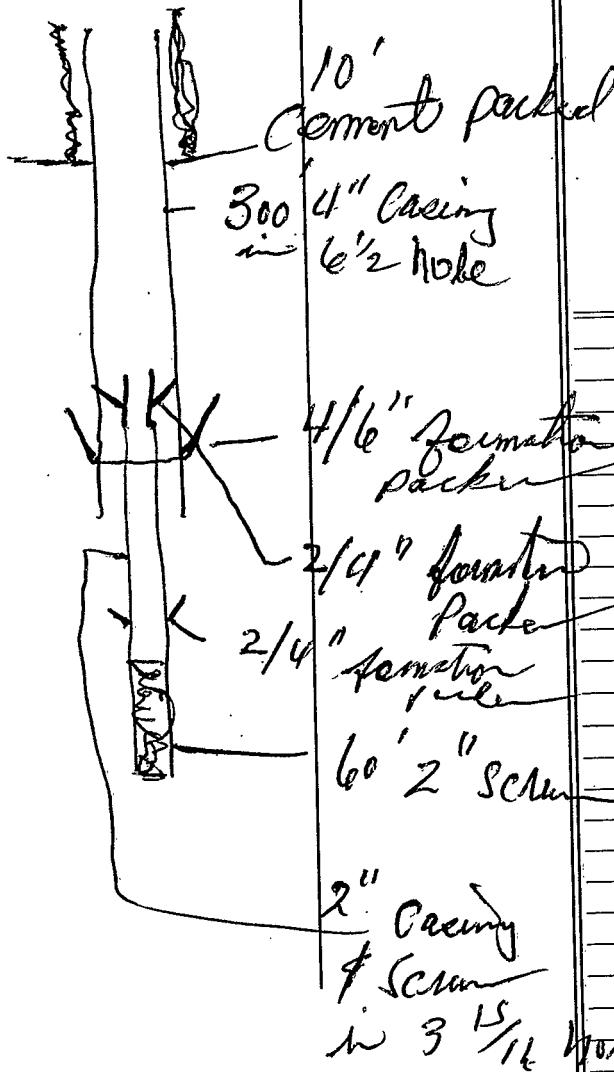 10'
Cement packed
300' 4" Casing
in 6 1/2 hole
4/6" formation
packer
2/4" formation
Packer
2/4" formation
60' 2" Screen
2" Casing
& Screen
in 3 15/16